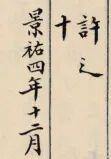 許之
十
景祐四年十二月